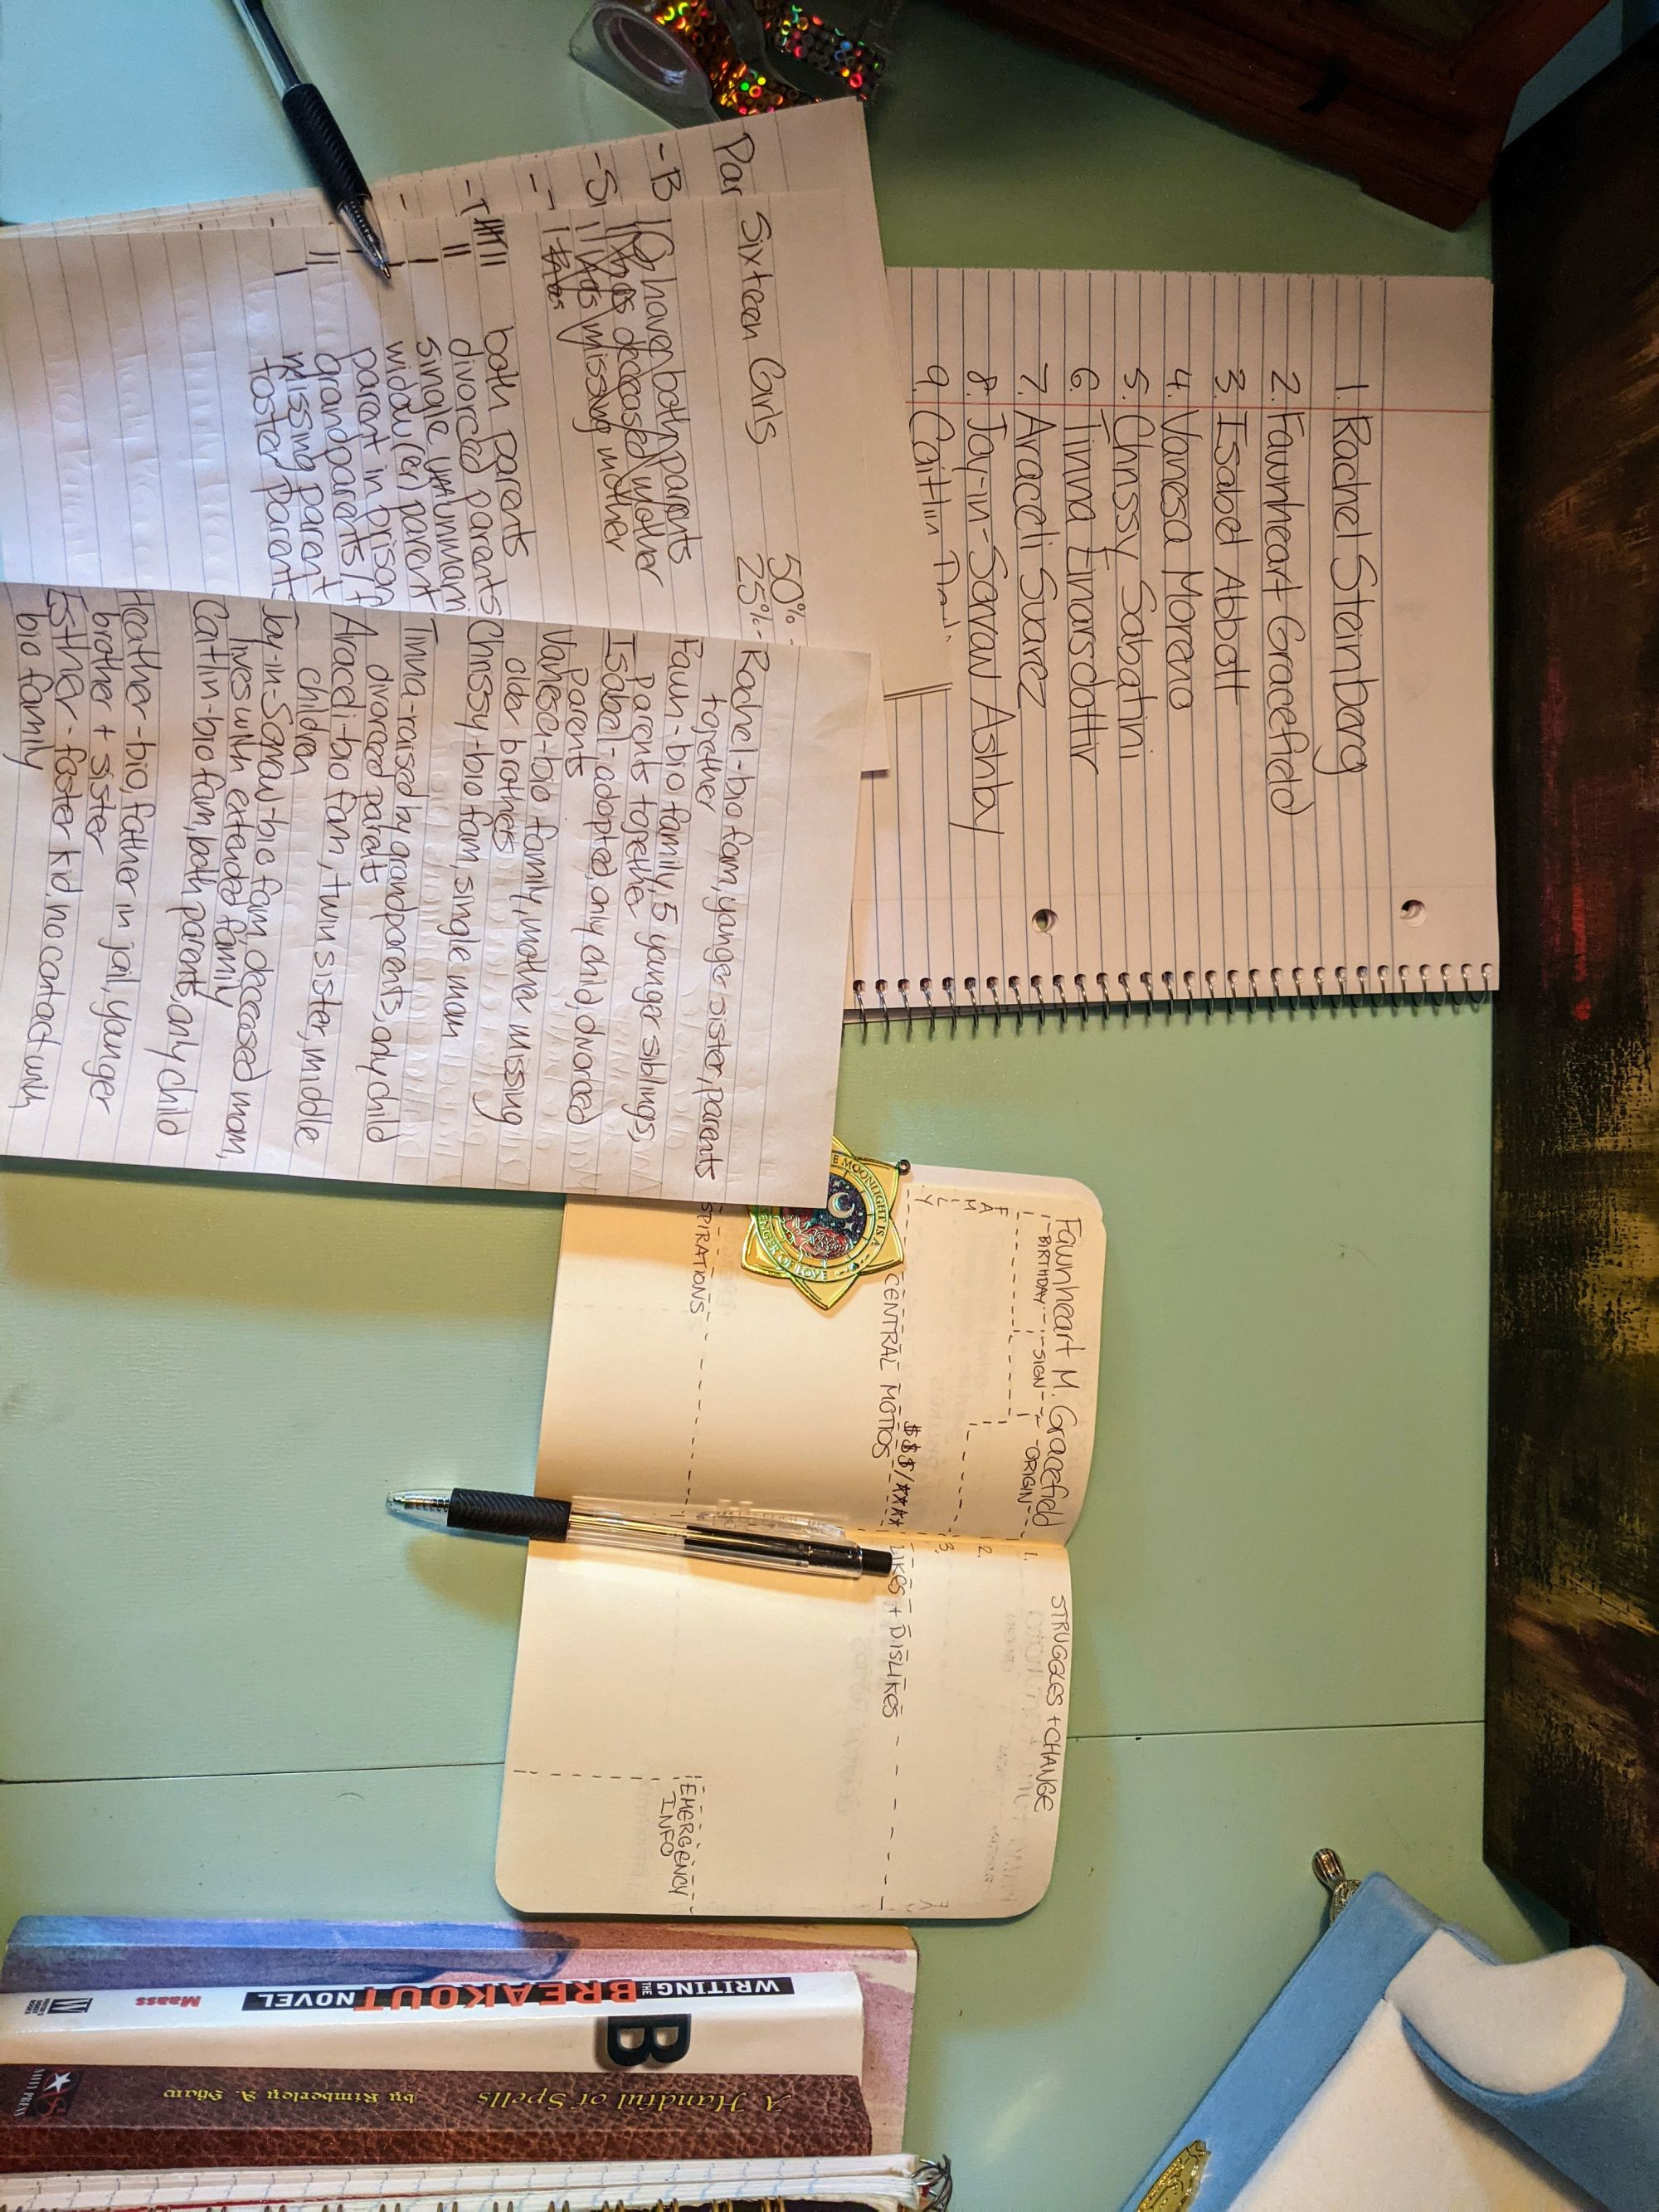 1. Rachel Steinberg
2. Fawnheart Gracefield
3. Isabel Abbott
4. Vanesa Moreno
5. Chrissy Sabatini
6. Tinna Einarsdottir
7. Araceli Suarez
8. Jay-in-Sarav Ashby
9. Caitlin
Par
-B
-Si
Sixteen Girls
50% -
25% -
have both parents
has deceased mother
has missing mother
both parents
divorced parents
single unmarri
widow(er) parent
parent in prison
grandparents
missing parent
foster parent
Rachel-bio fam, younger sister, parents
together
Fawn-bio family, 5 younger siblings,
parents together
Isabel-adopted, only child, divorced
Parents
Vanesa-bio family, mother missing
older brothers
Chrissy-bio fam, single mom
Tinna-raised by grandparents, only child
divorced parents
Araceli-bio fam, twin sister, middle
children
Jay-in-Sarav-bio fam, deceased mom,
lives with extended family
Caitlin-bio fam, both parents, only child
Heather-bio, father in jail, younger
brother + sister
Esther-foster kid, no contact with
bio family
Fawnheart M. Gracefield
BIRTHDAY SIGN ORIGIN
FAMILY
$$$/****
CENTRAL MOTTOS
SPIRATIONS
STRUGGLES + CHANGE
1.
2.
3.
LIKES + DISLIKES
EMERGENCY
INFO
MOONLIGHT IS A
SENGER OF LOVE
WRITING THE BREAKOUT NOVEL Maass
B
A Handful of Spells by Kimberley A. Shaw